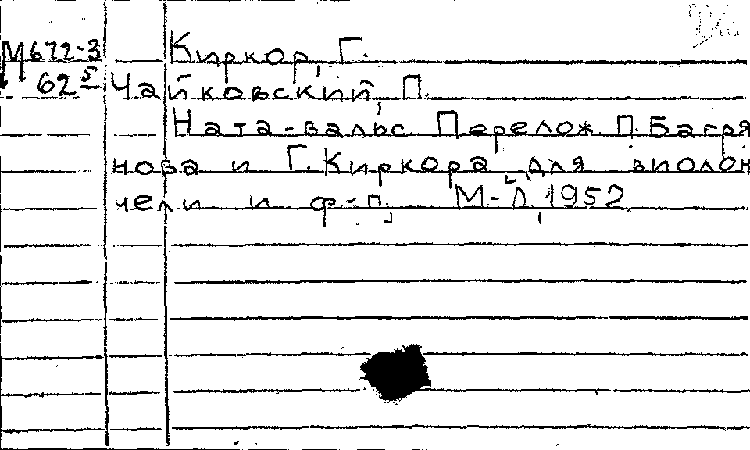 М672-3 Киркор, Г.
62 5 Чайковский, П.
Ната-вальс. Перелож. П. Багря
нова и Г. Киркора для виолон
чели и ф-п. М-Л, 1952